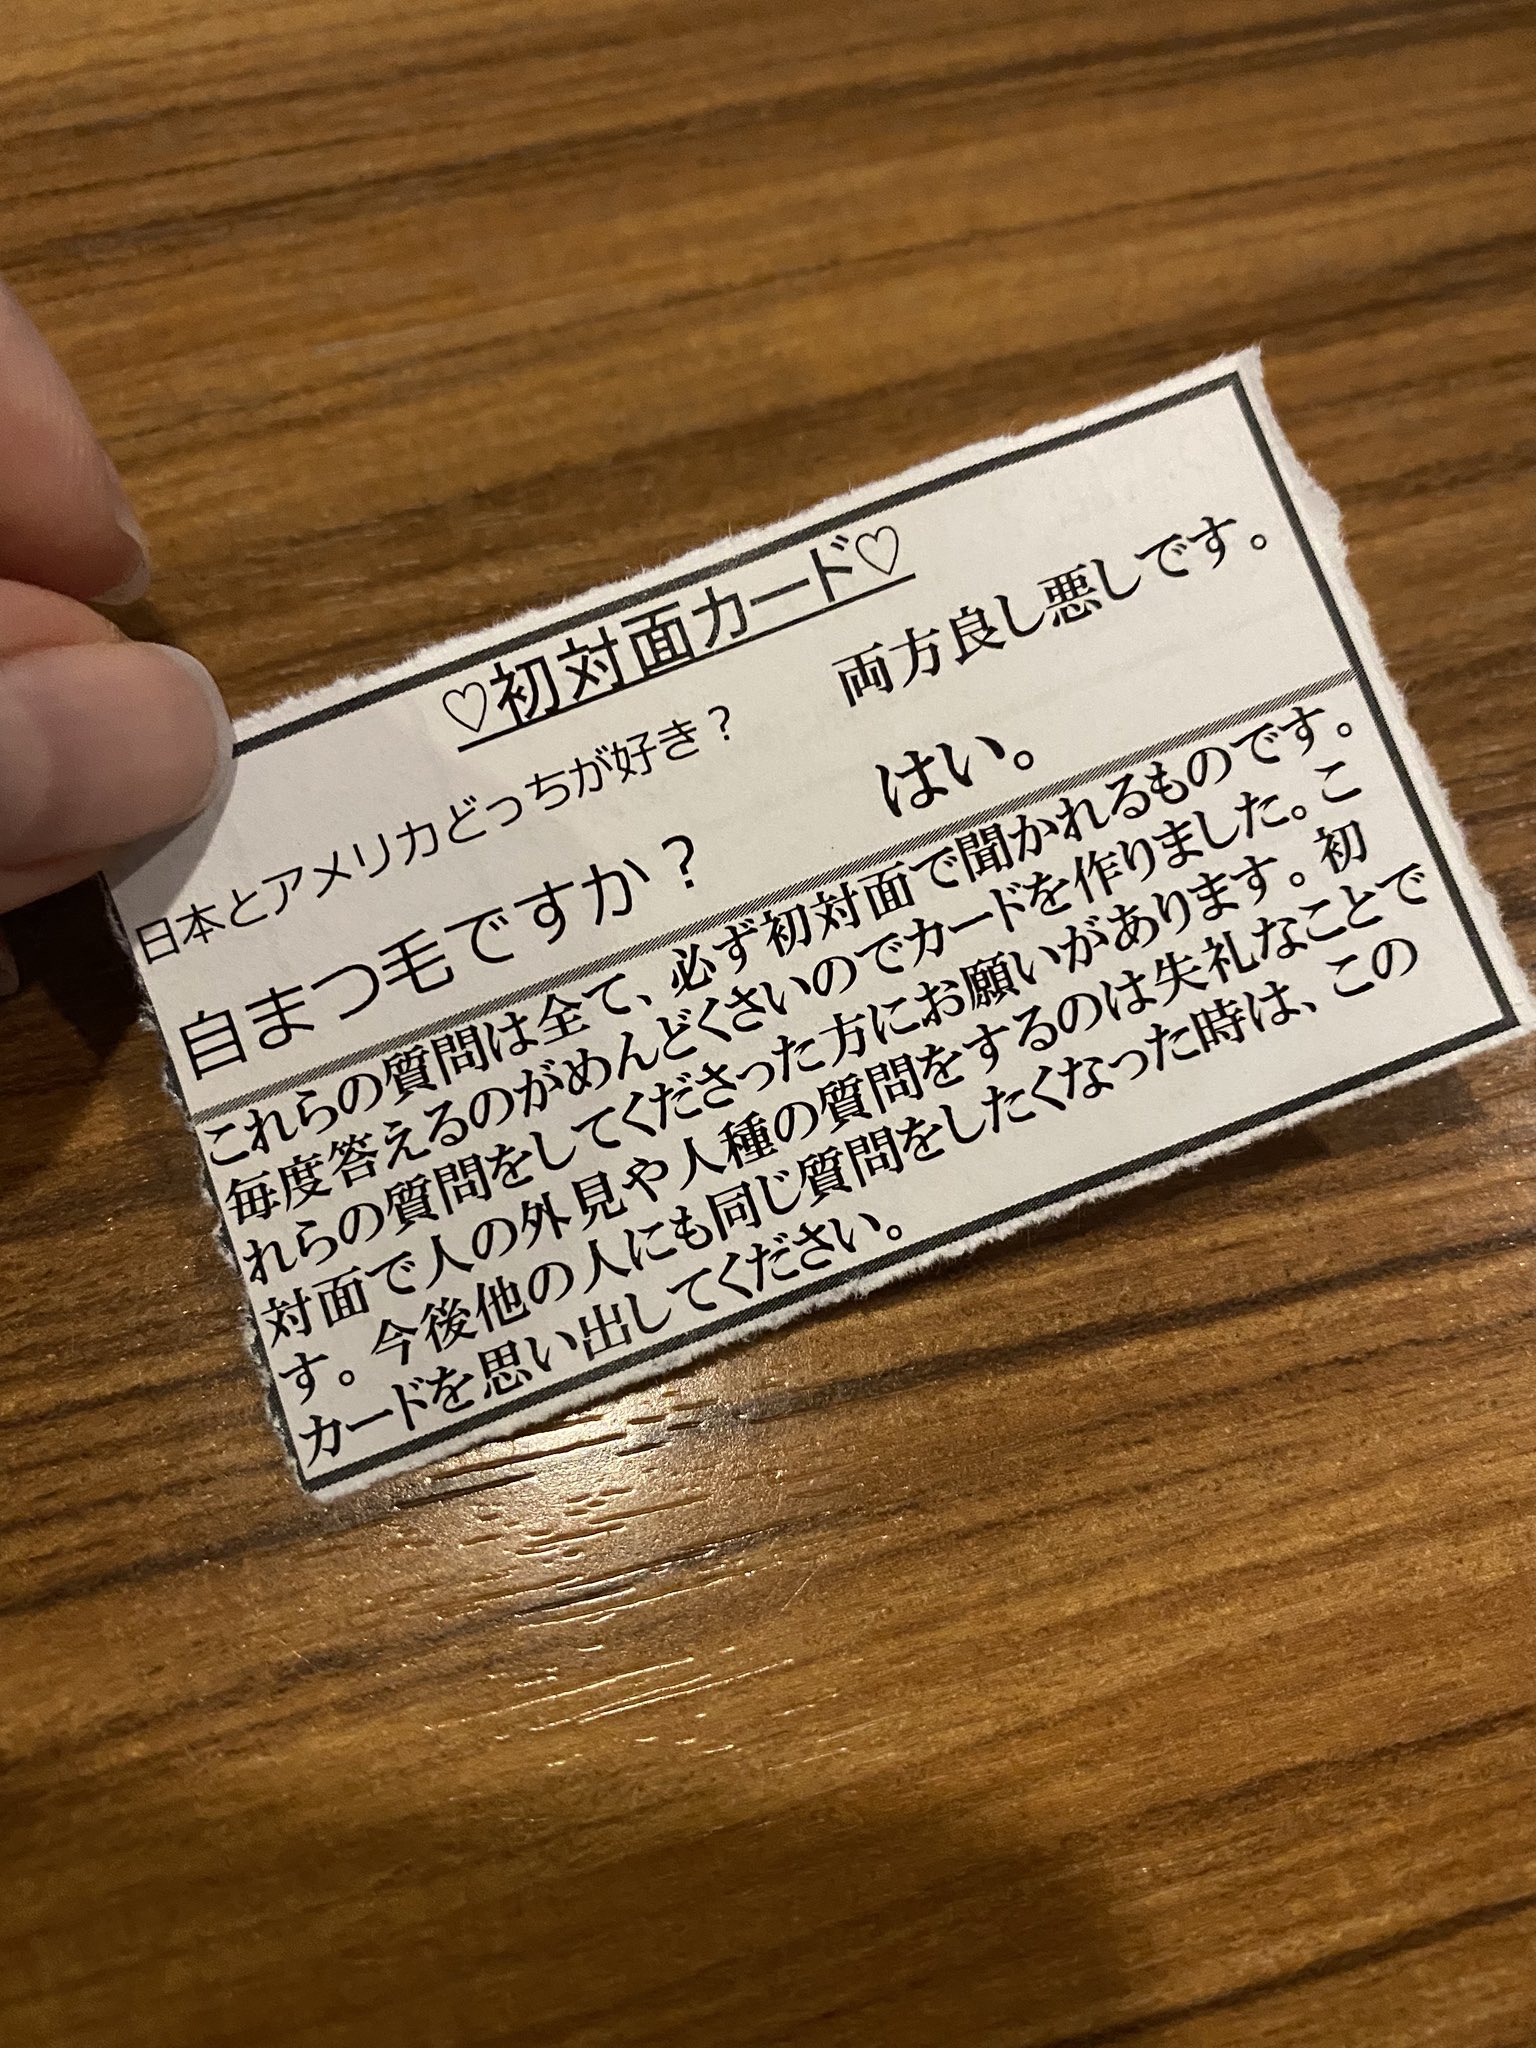 ♡初対面カード♡
日本とアメリカどっちが好き？ 両方良し悪しです。
自まつ毛ですか？ はい。
これらの質問は全て、必ず初対面で聞かれるものです。
毎度答えるのがめんどくさいのでカードを作りました。こ
れらの質問をしてくださった方にお願いがあります。初
対面で人の外見や人種の質問をするのは失礼なことで
す。今後他の人にも同じ質問をしたくなった時は、この
カードを思い出してください。